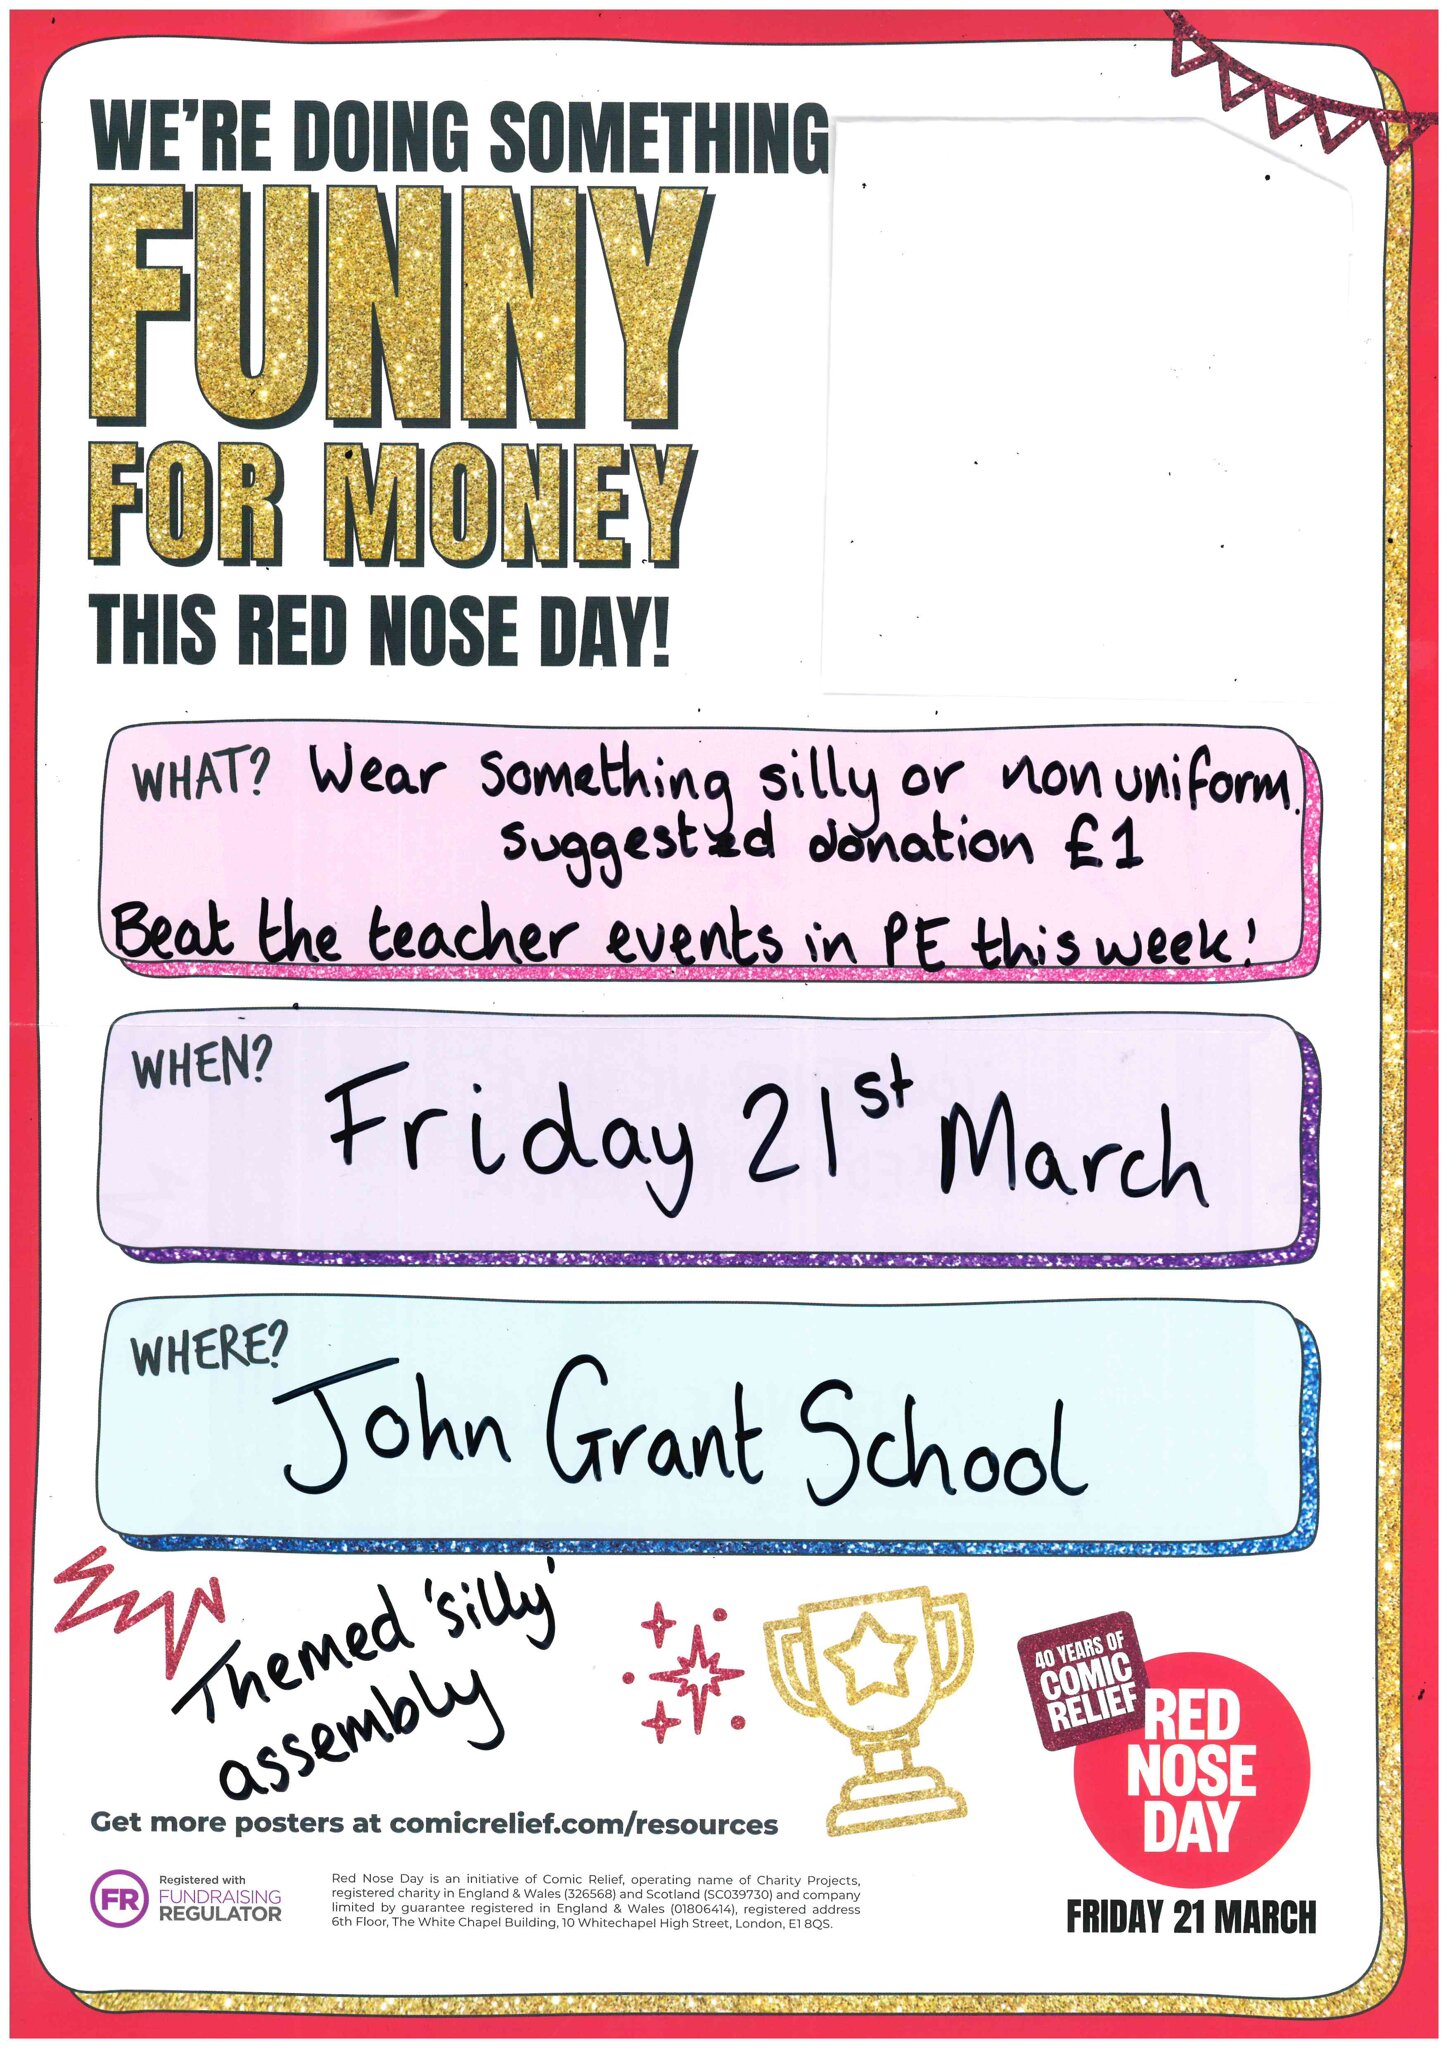 WE'RE DOING SOMETHING
FUNNY
FOR MONEY
THIS RED NOSE DAY!
WHAT? Wear something silly or non uniform.
suggested donation £1
Beat the teacher events in PE this week!
WHEN?
Friday 21st March
WHERE?
John Grant School
Themed 'silly'
assembly
40 YEARS OF
COMIC
RELIEF
RED
NOSE
DAY
Get more posters at comicrelief.com/resources
FR
Registered with
FUNDRAISING
REGULATOR
Red Nose Day is an initiative of Comic Relief, operating name of Charity Projects,
registered charity in England & Wales (326568) and Scotland (SC039730) and company
limited by guarantee registered in England & Wales (01806414), registered address
6th Floor, The White Chapel Building, 10 Whitechapel High Street, London, E1 8QS.
FRIDAY 21 MARCH